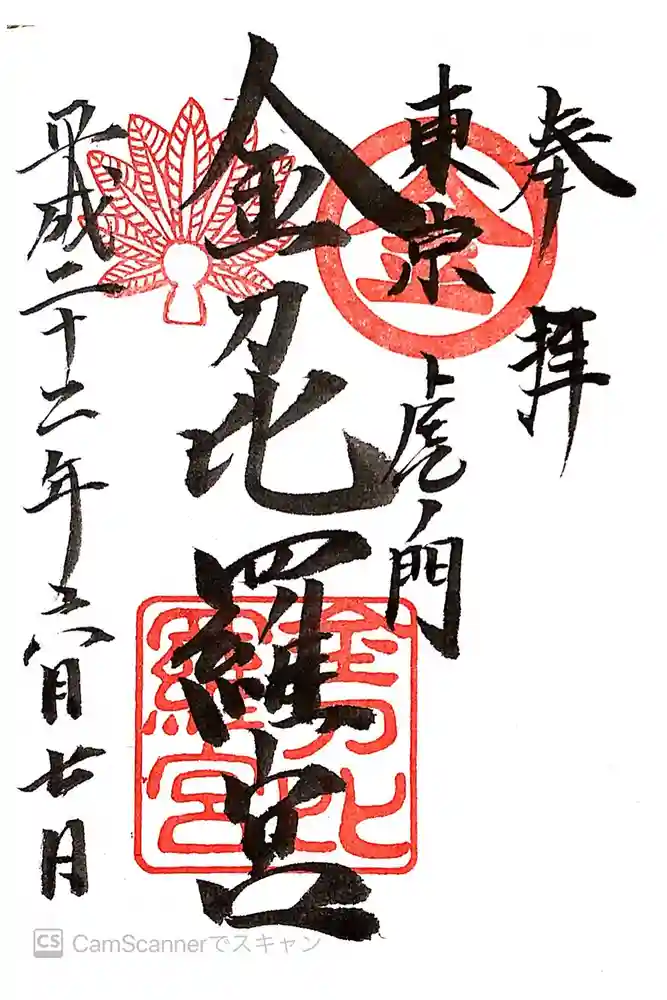 奉拝
東京虎ノ門
金
金刀比羅宮
金刀比羅宮
平成二十二年六月七日
CS CamScannerでスキャン